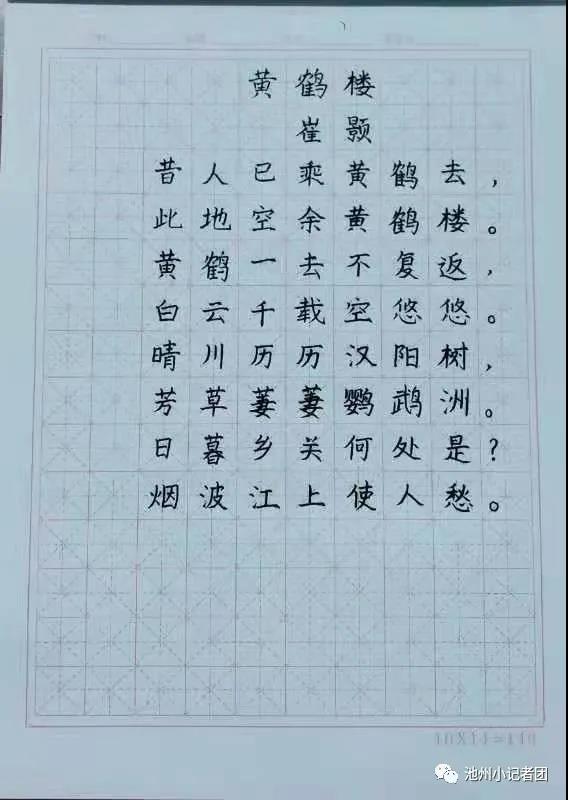 黄鹤楼
崔颢
昔人已乘黄鹤去，
此地空余黄鹤楼。
黄鹤一去不复返，
白云千载空悠悠。
晴川历历汉阳树，
芳草萋萋鹦鹉洲。
日暮乡关何处是？
烟波江上使人愁。
池州小记者团